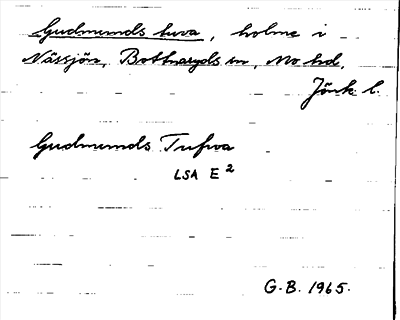 Gudmunds tuva, holme i
Nässjön, Bottnaryds sn, Mo hd,
Jönk. l.
Gudmunds Tufwa
LSA E²
G.B. 1965.